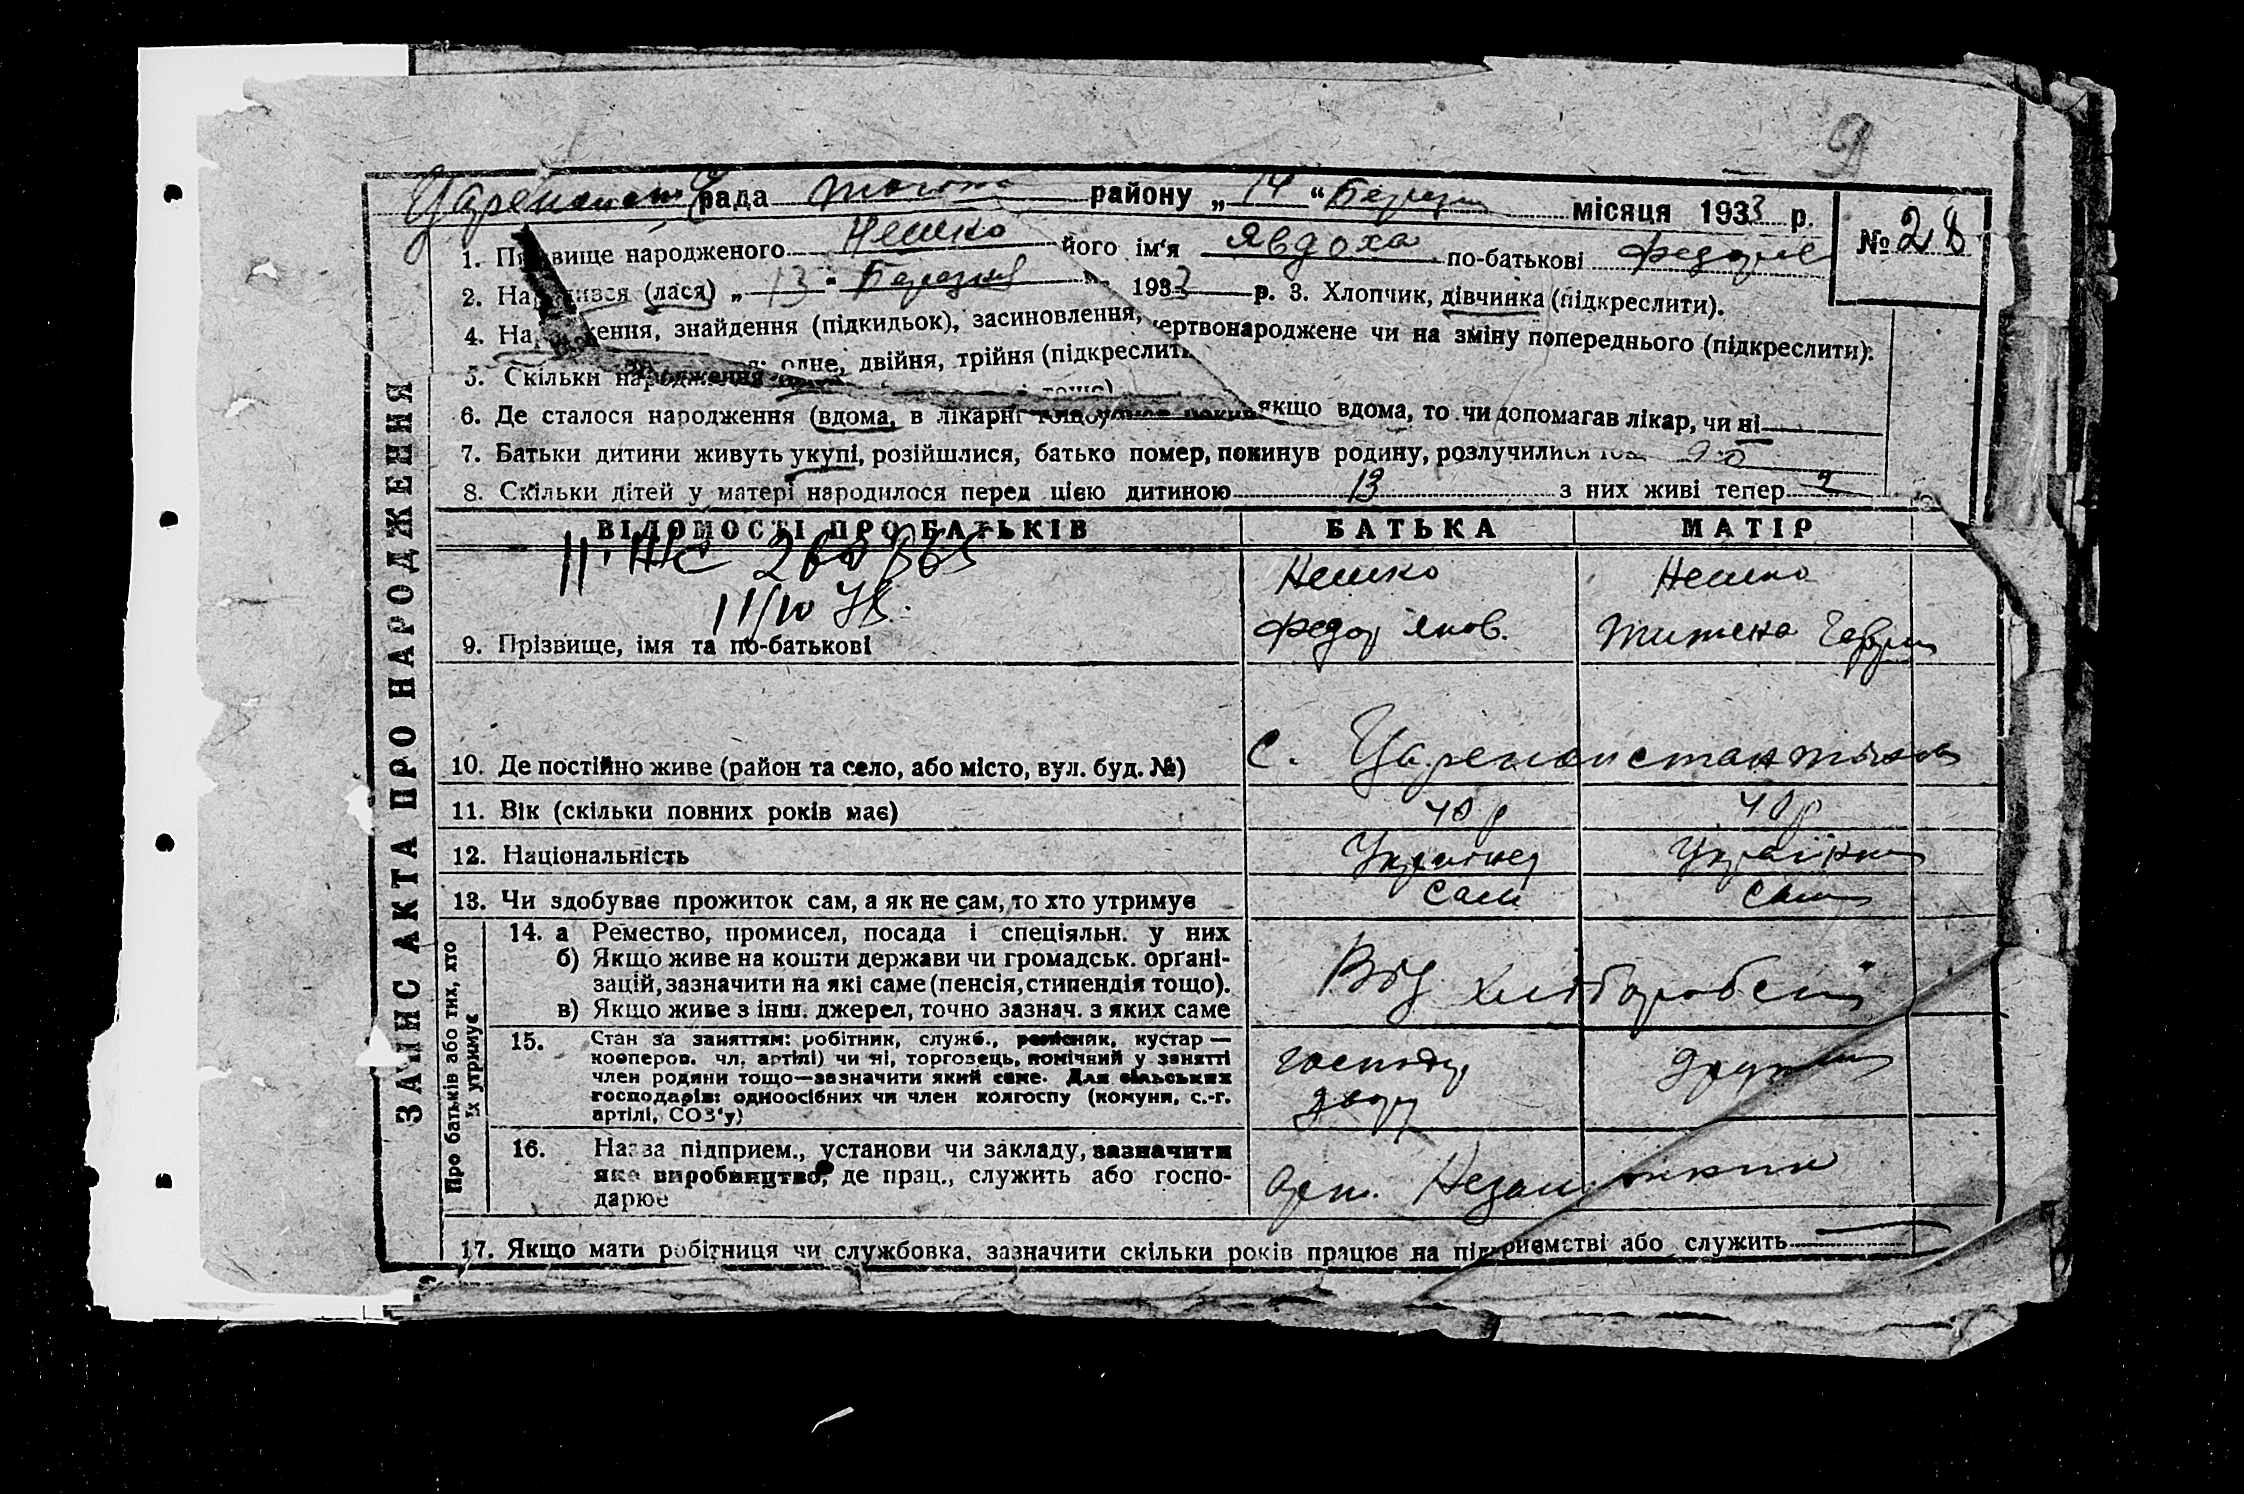 9
рада району „ 14 “ Березн місяця 1933 р.
№ 28
1. Прзвище народженого Нешко його ім'я Явдоха по-батькові Федорів
2. На ився (лася) „ 13 “ Березня 1933 р. 3. Хлопчик, дівчинка (підкреслити).
4. На ження, знайдення (підкидьок), засиновлення, ертвонароджене чи на зміну попереднього (підкреслити).
5. Скільки народження одне, двійня, трійня (підкреслит
6. Де сталося народження (вдома, в лікарні тощо) якщо вдома, то чи допомагав лікар, чи ні
7. Батьки дитини живуть укупі, розійшлися, батько помер, покинув родину, розлучилися
8. Скільки дітей у матері народилося перед цією дитиною 13 з них живі тепер 2
ЗАПИС АКТА ПРО НАРОДЖЕННЯ
ВІДОМОСТІ ПРО БАТЬКІВ БАТЬКА МАТІР
11/10
9. Прізвище, імя та по-батькові Нешко Федор Яков. Нешко
10. Де постійно живе (район та село, або місто, вул. буд. №) с. Цареконстантинов
11. Вік (скільки повних років має) 40 р 40 р
12. Національність Українец Українка
13. Чи здобуває прожиток сам, а як не сам, то хто утримує сам сама
Про батьків або тих, хто їх утримує
14. а Ремество, промисел, посада і спеціяльн. у них
б) Якщо живе на кошти держави чи громадськ. орґані-
зацій, зазначити на які саме (пенсія, стипендія тощо).
в) Якщо живе з інш. джерел, точно зазнач. з яких саме
Від хліборобства
15. Стан за заняттям: робітник, служб., ремісник, кустар —
кооперов. чл. артілі) чи ні, торговець, помічний у занятті
член родини тощо—зазначити який саме. Для сільських
господарів: одноосібних чи член колгоспу (комуни, с.-г.
артілі, СОЗ'у)
господ.
двору
16. Назва підприєм., установи чи закладу, зазначити
яке виробництво, де прац., служить або госпо-
дарює
арт. Незаможник
17. Якщо мати робітниця чи службовка, зазначити скільки років працює на підприємстві або служить